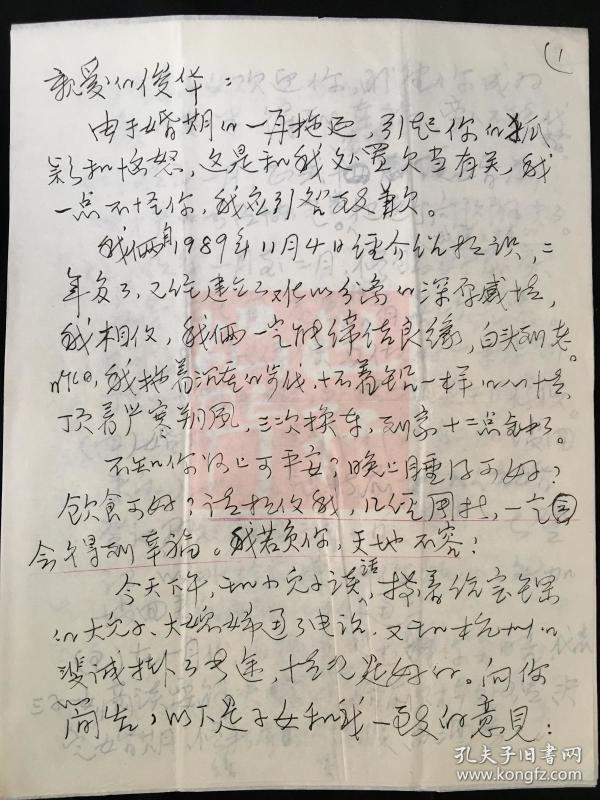 ①
亲爱的俊华：
由于婚期的一再拖延，引起你的孤
影和恼怒，这是和我处置欠当有关，我
一点不怪你，我应引咎致歉。
我俩自1989年11月4日经介绍相识，二
年多了，已经建立了难以分离的深厚感情，
我相信，我俩一定能缔结良缘，白头到老。
昨晚，我拖着沉重的步伐，怀着铅一样的心情，
顶着严寒朔风，三次换车，到家十二点钟了。
不知你路上可平安？晚上睡得可好？
饮食可好？请相信我，几经周折，一定
会得到幸福。我若负你，天地不容！
今天下午，和小儿子谈话，接着给
的大儿子、大媳妇通了电话，又和杭州的
斐诚挂了长途，情况是好的。向你
简告，以下是子女和我一致的意見：
孔夫子旧书网
www.kongfz.com